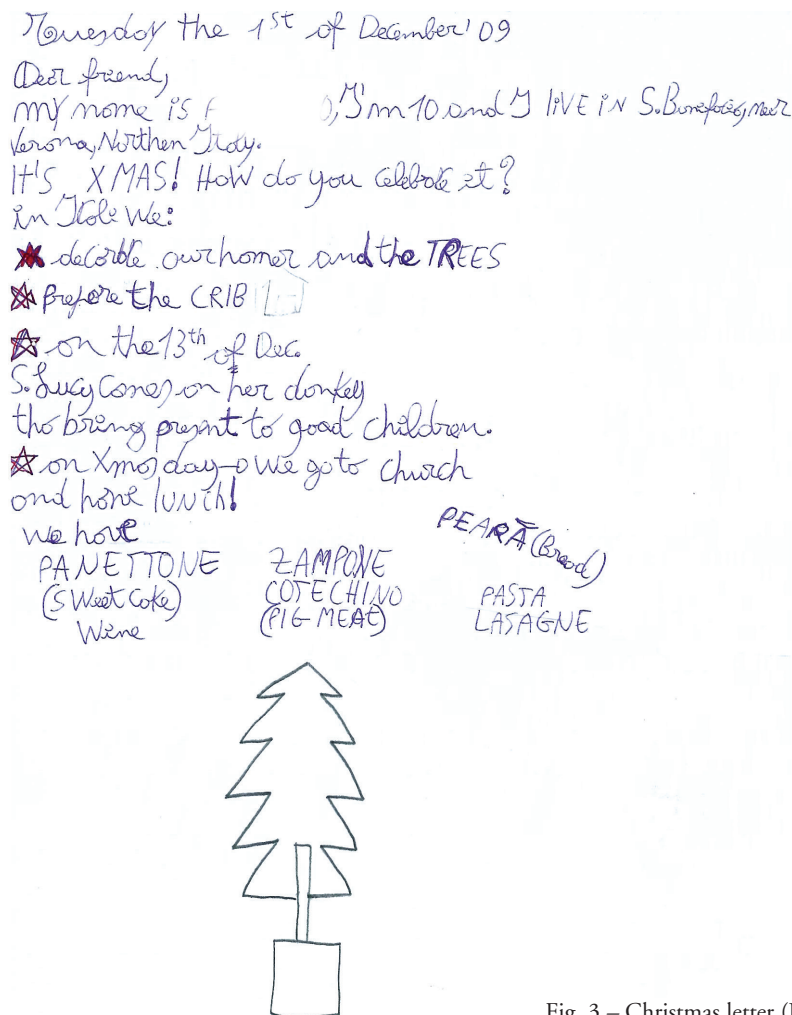 Tuesday the 1st of December' 09
Dear friend,
my name is F ), I'm 10 and I liVE iN S. Bonifacio, near
Verona, Northen Italy.
It'S XMAS! How do you celebrate it?
in Itale We:
decorate our homes and the TREES
prepare the CRIB
on the 13th of Dec.
S. Lucy comes on her donkey
tho bring present to good children.
on Xmas day → we go to church
and have lunch!
we have
PEARÀ (Bread)
PANETTONE ZAMPONE
(SWeet Cake) COTECHINO PASTA
Wine (PIG MEAT) LASAGNE
Fig. 3 – Christmas letter (